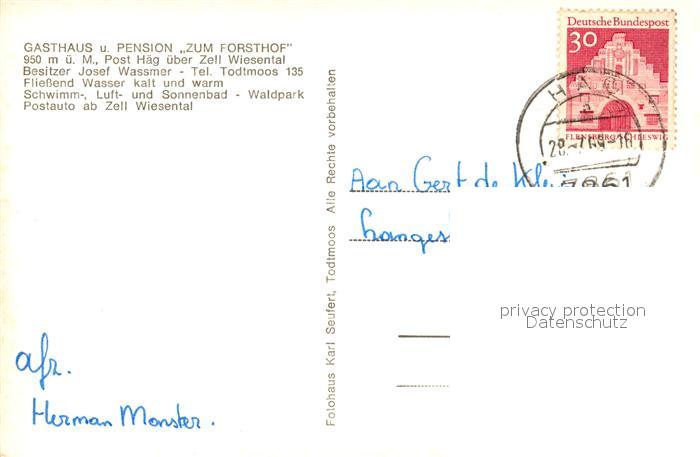 GASTHAUS u. PENSION „ZUM FORSTHOF"
950 m ü. M., Post Häg über Zell Wiesental
Besitzer Josef Wassmer - Tel. Todtmoos 135
Fließend Wasser kalt und warm
Schwimm-, Luft- und Sonnenbad - Waldpark
Postauto ab Zell Wiesental
Fotohaus Karl Seufert, Todtmoos Alle Rechte vorbehalten
Deutsche Bundespost
30
FLENSBURG/SCHLESWIG
HÄG
28.-7.69-16
7861
Aan Gert de
Langes
privacy protection
Datenschutz
afz.
Herman Monster.